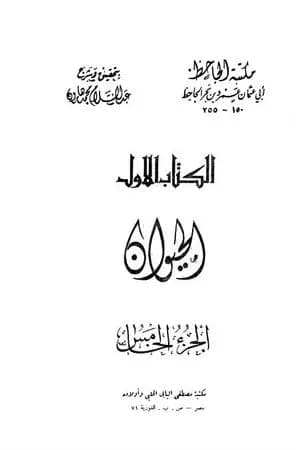 مكتبة الجاحظ
أبي عثمان عمرو بن بحر الجاحظ
١٥٠ - ٢٥٥
بتحقيق وشرح
عبد السلام محمد هارون
الكتاب الأول
الحيوان
الجزء الخامس
مكتبة مصطفى البابي الحلبي وأولاده
مصر - ص . ب . الغورية ٧١